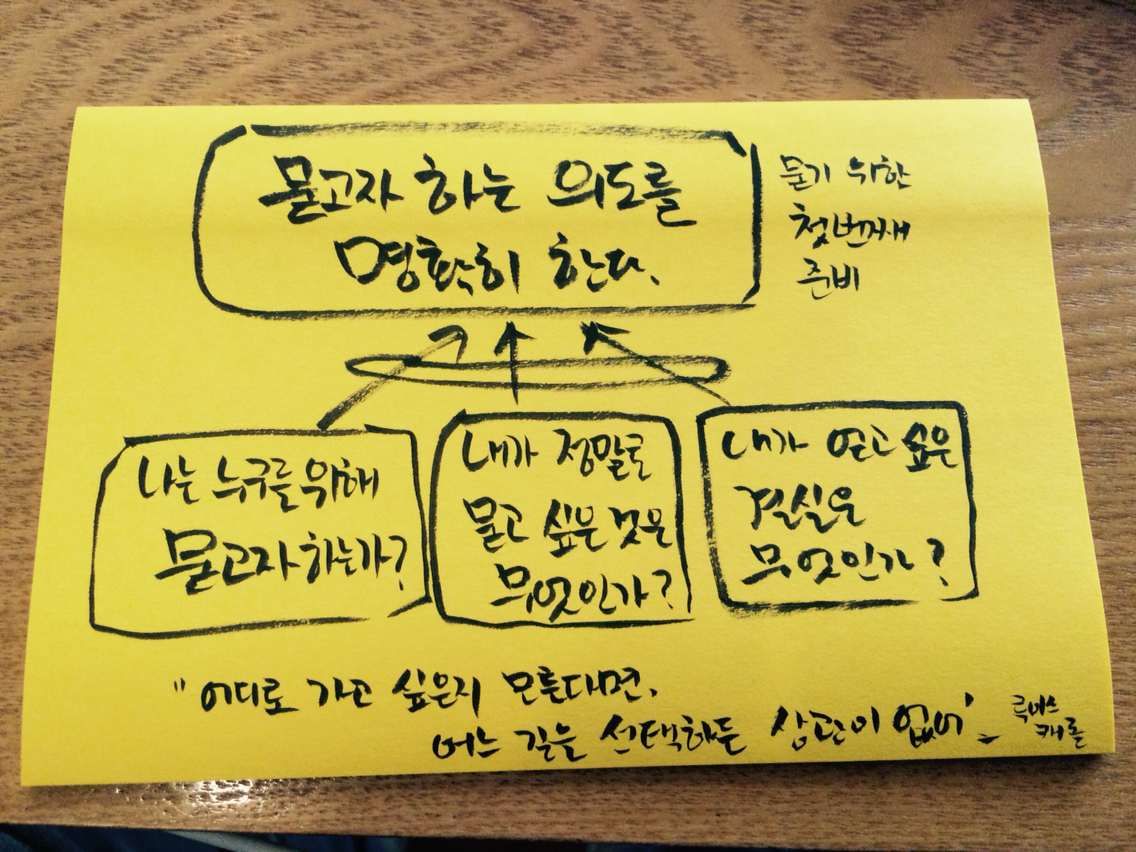 묻고자 하는 의도를
명확히 한다.
묻기 위한
첫번째
준비
나는 누구를 위해
묻고자 하는가?
내가 정말로
묻고 싶은 것은
무엇인가?
내가 얻고 싶은
결실은
무엇인가?
"어디로 가고 싶은지 모른다면,
어느 길을 선택하든 상관이 없어"_
루이스
캐롤